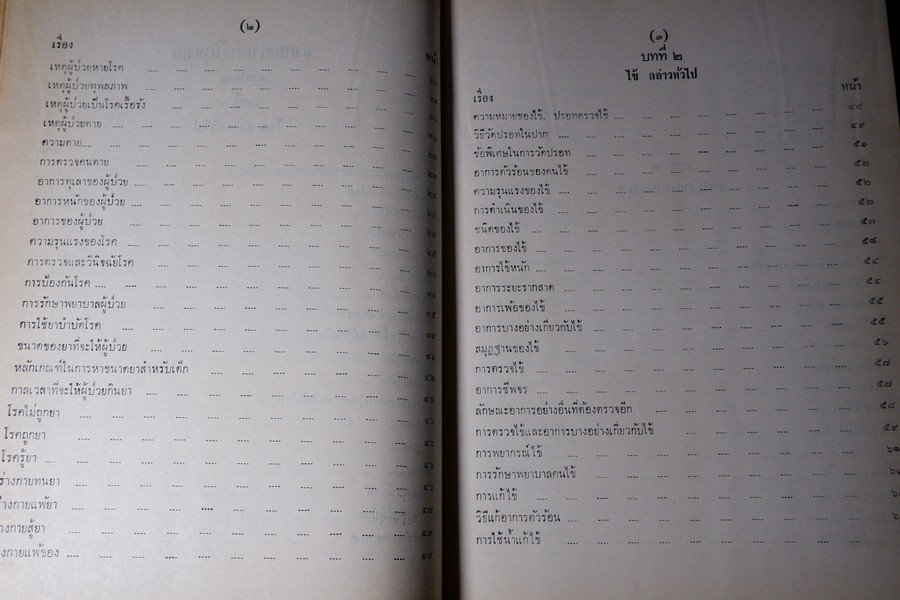 (๒)
เรื่อง
หน้า
เหตุผู้ป่วยหายโรค
เหตุผู้ป่วยทุพลภาพ
เหตุผู้ป่วยเป็นโรคเรื้อรัง
เหตุผู้ป่วยตาย
ความตาย
การตรวจคนตาย
อาการทุเลาของผู้ป่วย
อาการหนักของผู้ป่วย
อาการของผู้ป่วย
ความรุนแรงของโรค
การตรวจและวินิจฉัยโรค
การป้องกันโรค
การรักษาพยาบาลผู้ป่วย
การใช้ยาบำบัดโรค
ขนาดของยาที่จะให้ผู้ป่วย
หลักเกณฑ์ในการหาขนาดยาสำหรับเด็ก
กาลเวลาที่จะให้ผู้ป่วยกินยา
โรคไม่ถูกยา
โรคถูกยา
โรครู้ยา
ร่างกายทนยา
ร่างกายแพ้ยา ๔๗
างกายสู้ยา
งกายแพ้ของ
(๓)
บทที่ ๒
ไข้ กล่าวทั่วไป
เรื่อง หน้า
ความหมายของไข้, ปรอทตรวจไข้ ๔๘
วิธีวัดปรอทในปาก ๔๙
ข้อพิเศษในการวัดปรอท ๕๑
อาการตัวร้อนของคนไข้ ๕๒
ความรุนแรงของไข้ ๕๒
การดำเนินของไข้ ๕๒
ชนิดของไข้ ๕๓
อาการของไข้ ๕๔
อาการไข้หนัก ๕๔
อาการระยะรากสาด ๕๔
อาการเพ้อของไข้ ๕๕
อาการบางอย่างเกี่ยวกับไข้ ๕๕
สมุฏฐานของไข้ ๕๖
การตรวจไข้ ๕๗
อาการชีพจร ๕๗
ลักษณะอาการอย่างอื่นที่ต้องตรวจอีก ๕๘
การตรวจไข้และอาการบางอย่างเกี่ยวกับไข้ ๕๙
การพยากรณ์ไข้ ๖๑
การรักษาพยาบาลคนไข้
การแก้ไข้
วิธีแก้อาการตัวร้อน
การใช้น้ำแก้ไข้